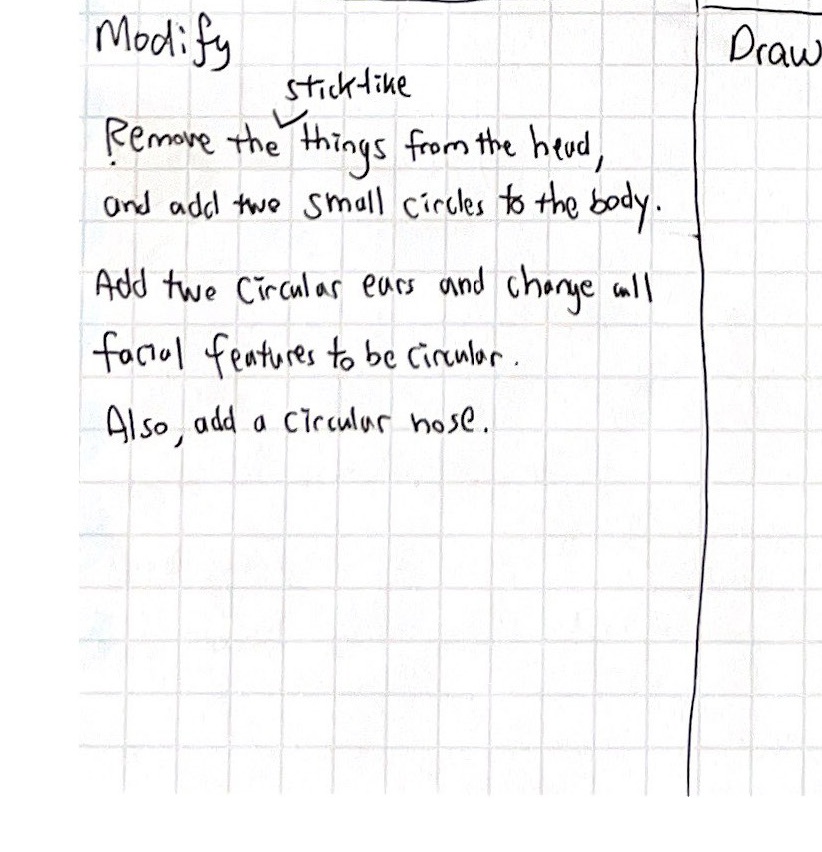 Modify
Draw
stick-like
Remove the things from the head,
and add two small circles to the body.
Add two circular ears and change all
facial features to be circular.
Also, add a circular nose.